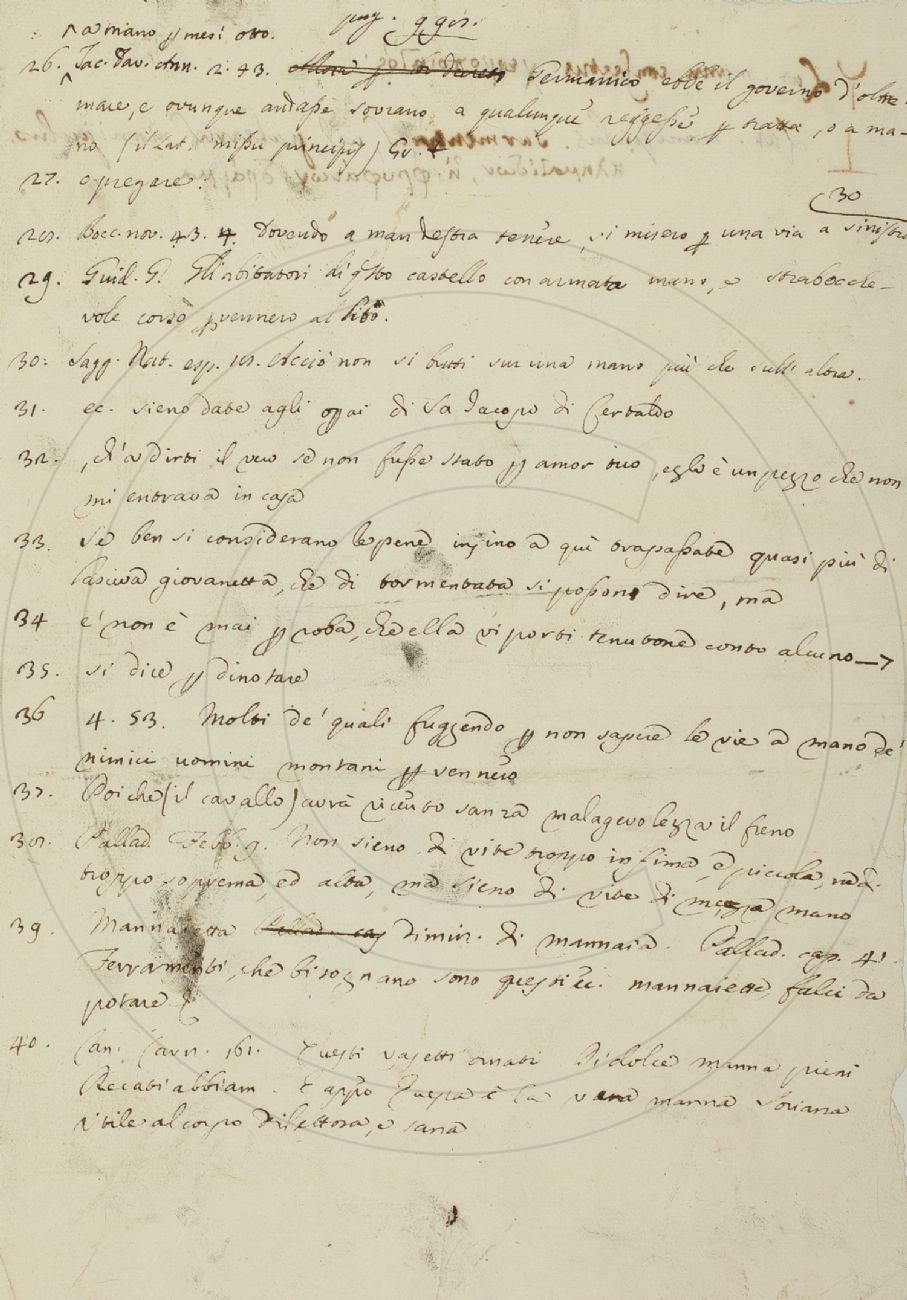 a mano p mesi otto.
pag. 998.
26. Tac. Dav. Ann. 2. 43. Germanico ebbe il governo d'oltre
mare, e ovunque andasse sovrano a qualunque reggesse p tratta, o a ma-
no (il Lat. missu principis) Gr. 4
27. o pregare:
30
28. Bocc. nov. 43. 4. Dovendo a man destra tenere, si misero p una via a sinistra
29. Guid. G. Gli abitatori di qsto castello con armata mano, e strabocche-
vole corso pvennero al lito.
30. Sagg. Nat. esp. 18. Acciò non si butti su una mano più che sull'altra.
31. ec. sieno date agli opai di Sa Jacopo di Certaldo
32. , ch'a dirti il vero se non fusse stato p amor tuo, egli è un pezzo che non
mi entrava in casa
33. Se ben si considerano le pene infino a qui trapassate quasi più di
lasciva giovanetta, che di tormentata si possono dire, ma
34 e' non è mai p roba, che ella vi porti tenutone conto alcuno
35. si dice p dinotare
36 4. 53. Molti de' quali fuggendo p non sapere le vie a mano de'
nimici uomini montani pvennero
37. Poichè (il cavallo) avrà vicento sanza malagevolezza il freno
38. Pallad. Febb. 9. Non sieno di vite troppo infima, e piccola, nè a
troppo soprema, ed alta, ma sieno di vite di mezza mano
39. Mannaietta dimin. di mannaia. Pallad. cap. 41.
Ferramenti, che bisognano sono questi ec. mannaiette, falci da
potare
40. Can. Carn. 161. Questi vasetti ornati Di dolce manna pieni
Recati abbiam. E appo Questa è la vera manna Soriana
Utile al corpo dilettosa, e sana